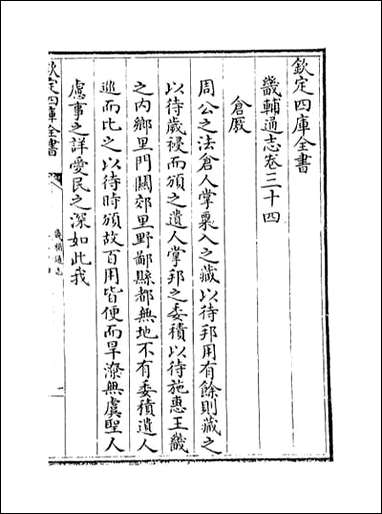 欽定四庫全書
畿輔通志卷三十四
倉厫
周公之法倉人掌粟入之藏以待邦用有餘則藏之
以待歲祲而頒之遺人掌邦之委積以待施惠王畿
之内鄉里門關郊里野鄙縣都無地不有委積遺人
巡而比之以待時頒故百用皆便而旱潦無虞聖人
慮事之詳愛民之深如此我
欽定四庫全書
畿輔通志
一